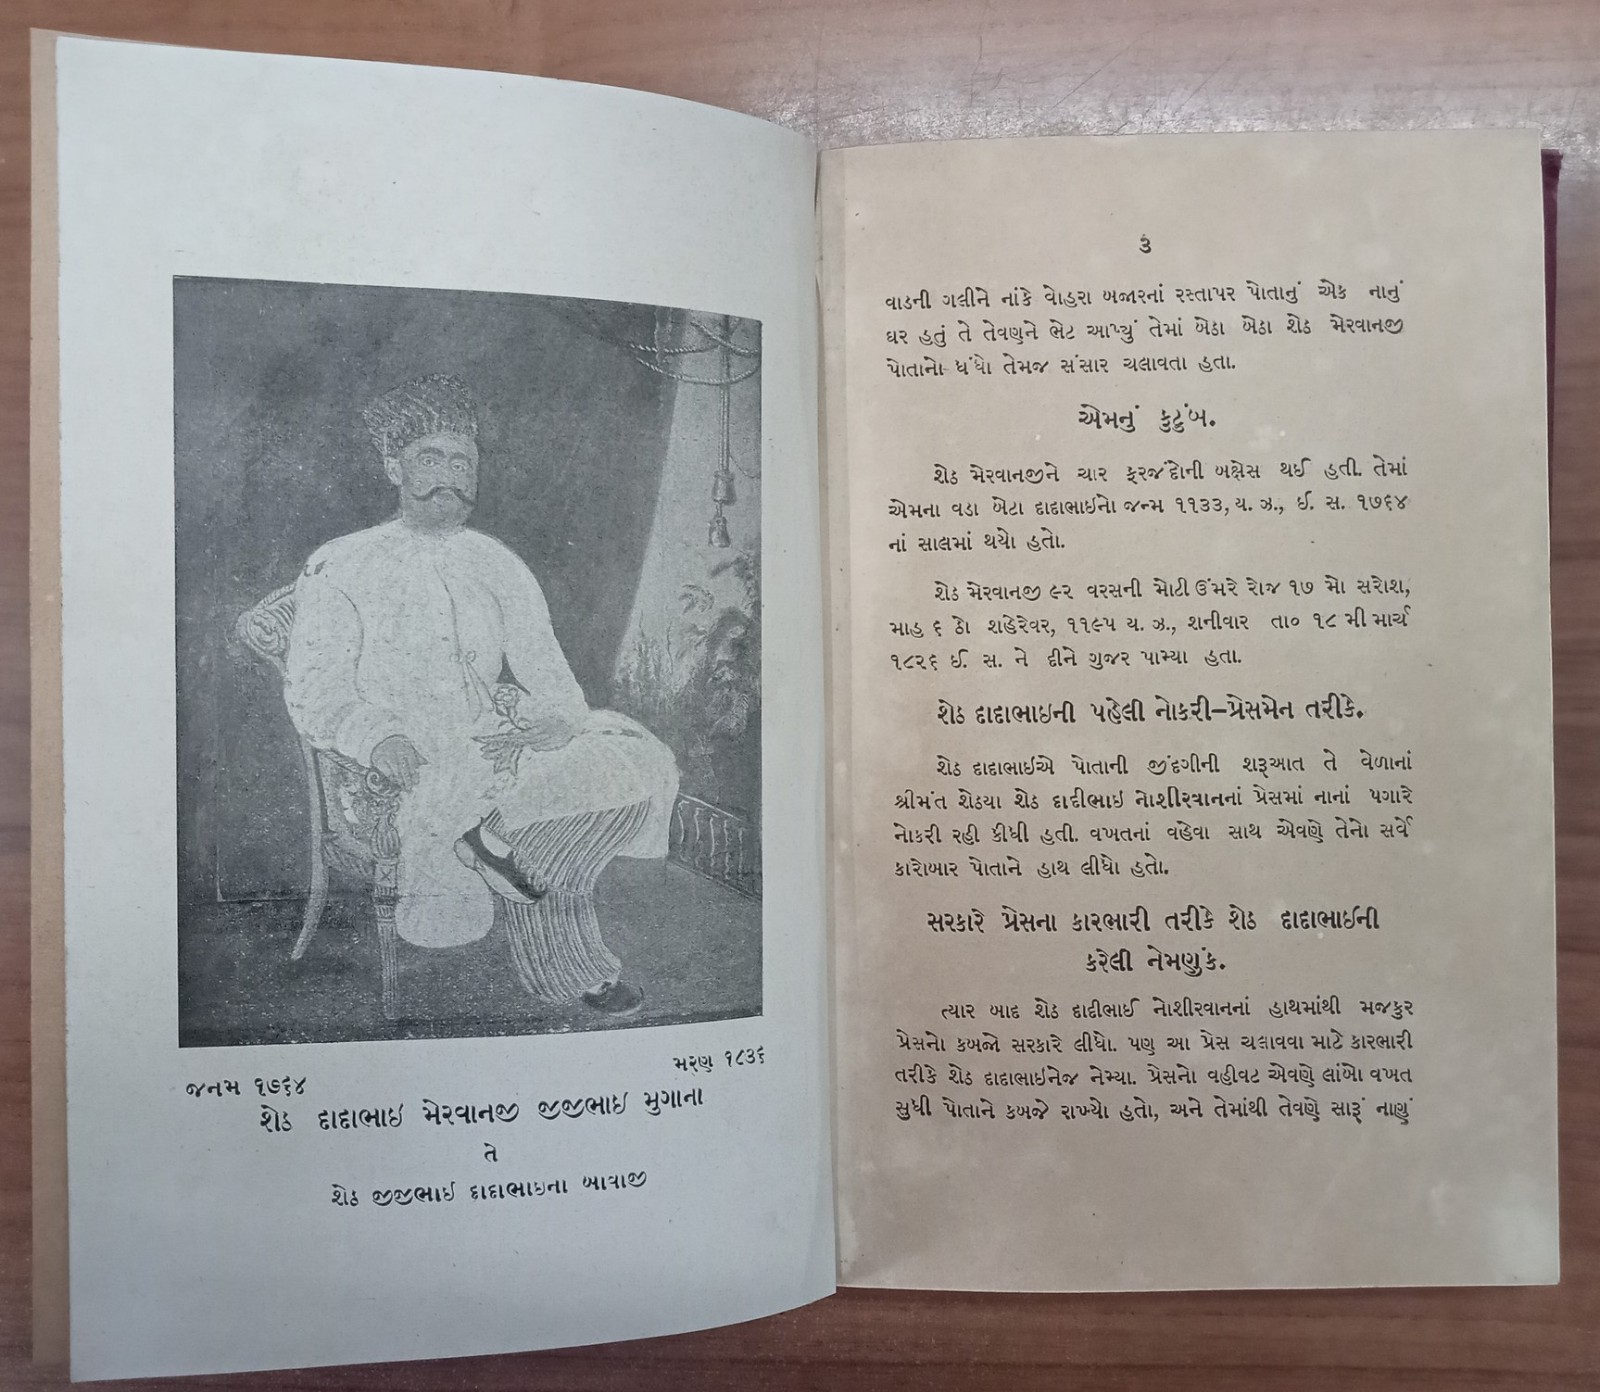 જનમ ૧૭૬૪
મરણ ૧૮૩૬
શેઠ દાદાભાઇ મેરવાનજી જીજીભાઇ મુગાના
તે
શેઠ જીજીભાઇ દાદાભાઇના બાવાજી
૩
વાડની ગલીને નાંકે વોહરા બજારનાં રસ્તાપર પોતાનું એક નાનું
ઘર હતું તે તેવણને ભેટ આપ્યું તેમાં બેઠા બેઠા શેઠ મેરવાનજી
પોતાનો ધંધો તેમજ સંસાર ચલાવતા હતા.
એમનું કુટુંબ.
શેઠ મેરવાનજીને ચાર ફરજંદોની બક્ષેસ થઈ હતી. તેમાં
એમના વડા બેટા દાદાભાઇનો જન્મ ૧૧૩૩, ય. ઝ., ઈ. સ. ૧૭૬૪
નાં સાલમાં થયો હતો.
શેઠ મેરવાનજી ૯૨ વરસની મોટી ઉંમરે રોજ ૧૭ મો સરોશ,
માહ ૬ ઠો શહેરેવર, ૧૧૯૫ ય. ઝ., શનીવાર તા૦ ૧૮ મી માર્ચ
૧૮૨૬ ઈ. સ. ને દીને ગુજર પામ્યા હતા.
શેઠ દાદાભાઇની પહેલી નોકરી–પ્રેસમેન તરીકે.
શેઠ દાદાભાઇએ પોતાની જીંદગીની શરૂઆત તે વેળાનાં
શ્રીમંત શેઠયા શેઠ દાદીભાઇ નોશીરવાનનાં પ્રેસમાં નાનાં પગારે
નોકરી રહી કીધી હતી. વખતનાં વહેવા સાથ એવણે તેનો સર્વે
કારોબાર પોતાને હાથ લીધો હતો.
સરકારે પ્રેસના કારભારી તરીકે શેઠ દાદાભાઈની
કરેલી નેમણુંક.
ત્યાર બાદ શેઠ દાદીભાઈ નોશીરવાનનાં હાથમાંથી મજકુર
પ્રેસનો કબજો સરકારે લીધો. પણ આ પ્રેસ ચલાવવા માટે કારભારી
તરીકે શેઠ દાદાભાઇનેજ નેમ્યા. પ્રેસનો વહીવટ એવણે લાંબો વખત
સુધી પોતાને કબજે રાખ્યો હતો, અને તેમાંથી તેવણે સારૂં નાણું